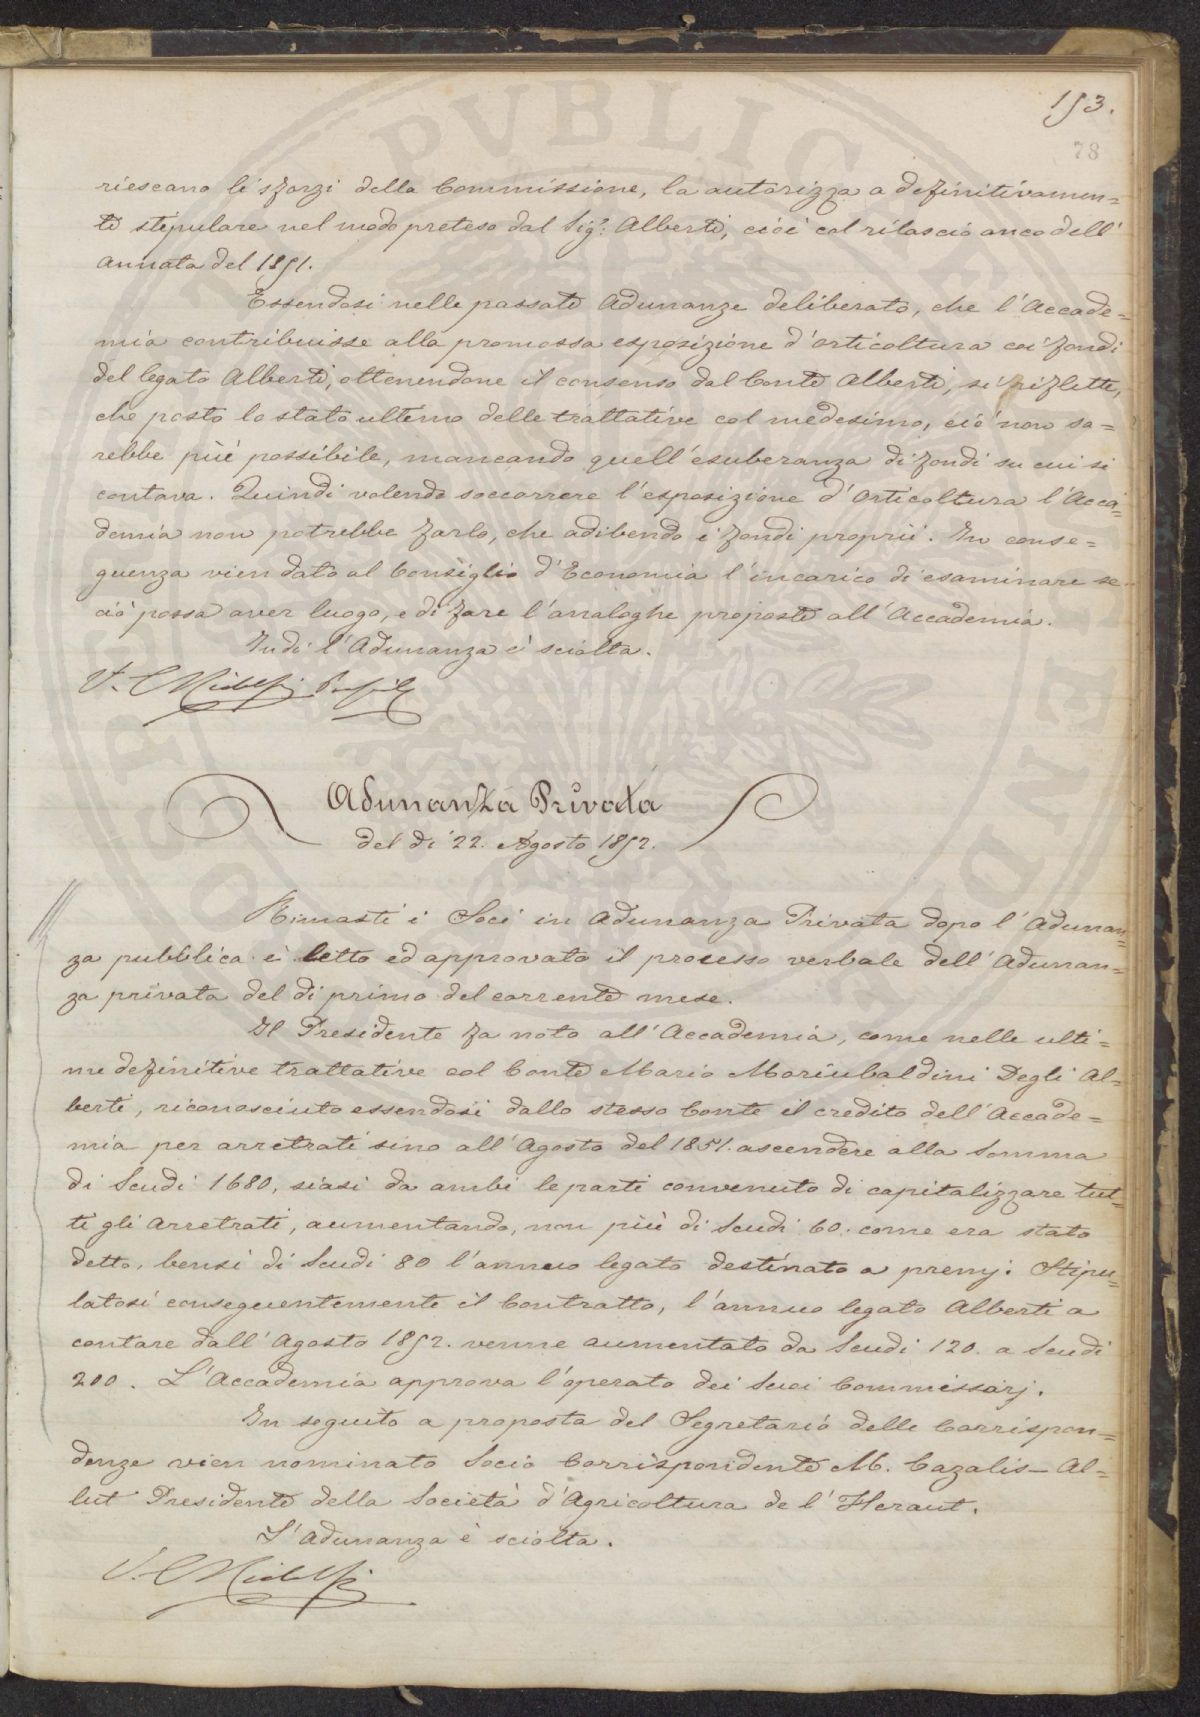 153.
78
riescano li sforzi della Commissione, la autorizza a definitivamen=
te stipulare nel modo preteso dal Sig.r Alberti, cioè col rilascio anco dell'
annata del 1851.
Essendosi nelle passate Adunanze deliberato, che l'Accade=
mia contribuisse alla promossa esposizione d'orticoltura coi fondi
del legato Alberti, ottenendone il consenso dal Conte Alberti, si riflette,
che posto lo stato ultimo delle trattative col medesimo, ciò non sa=
rebbe più possibile, mancando quell'esuberanza di fondi su cui si
contava. Quindi volendo soccorrere l'esposizione d'orticoltura l'Acca=
demia non potrebbe farlo, che adibendo i fondi proprii. In conse=
guenza vien dato al Consiglio d'Economia l'incarico di esaminare se
ciò possa aver luogo, e di fare l'analoghe proposte all'Accademia.
Indi l'Adunanza è sciolta.
V. C Ridolfi
Adunanza Privata
del dì 22. Agosto 1852.
Rimasti i Soci in Adunanza Privata dopo l'Adunan=
za pubblica è letto ed approvato il processo verbale dell'Adunan=
za privata del dì primo del corrente mese.
Il Presidente fa noto all'Accademia, come nelle ulti=
me definitive trattative col Conte Mario Moriubaldini Degli Al=
berti, riconosciuto essendosi dallo stesso Conte il credito dell'Accade=
mia per arretrati sino all'Agosto del 1851. ascendere alla somma
di Scudi 1680, siasi da ambi le parti convenuto di capitalizzare tut=
ti gli arretrati, aumentando, non più di Scudi 60. come era stato
detto, bensì di Scudi 80 l'annuo legato destinato a premj. Stipu=
latosi conseguentemente il Contratto, l'annuo legato Alberti a
contare dall'Agosto 1852. venne aumentato da Scudi 120. a Scudi
200. L'Accademia approva l'operato dei suoi Commissarj.
In seguito a proposta del Segretario delle Corrispon=
denze vien nominato Socio Corrispondente M. Cazalis-Al=
lut Presidente della Società d'Agricoltura de l'Heraut.
L'adunanza è sciolta.
V. C Ridolfi